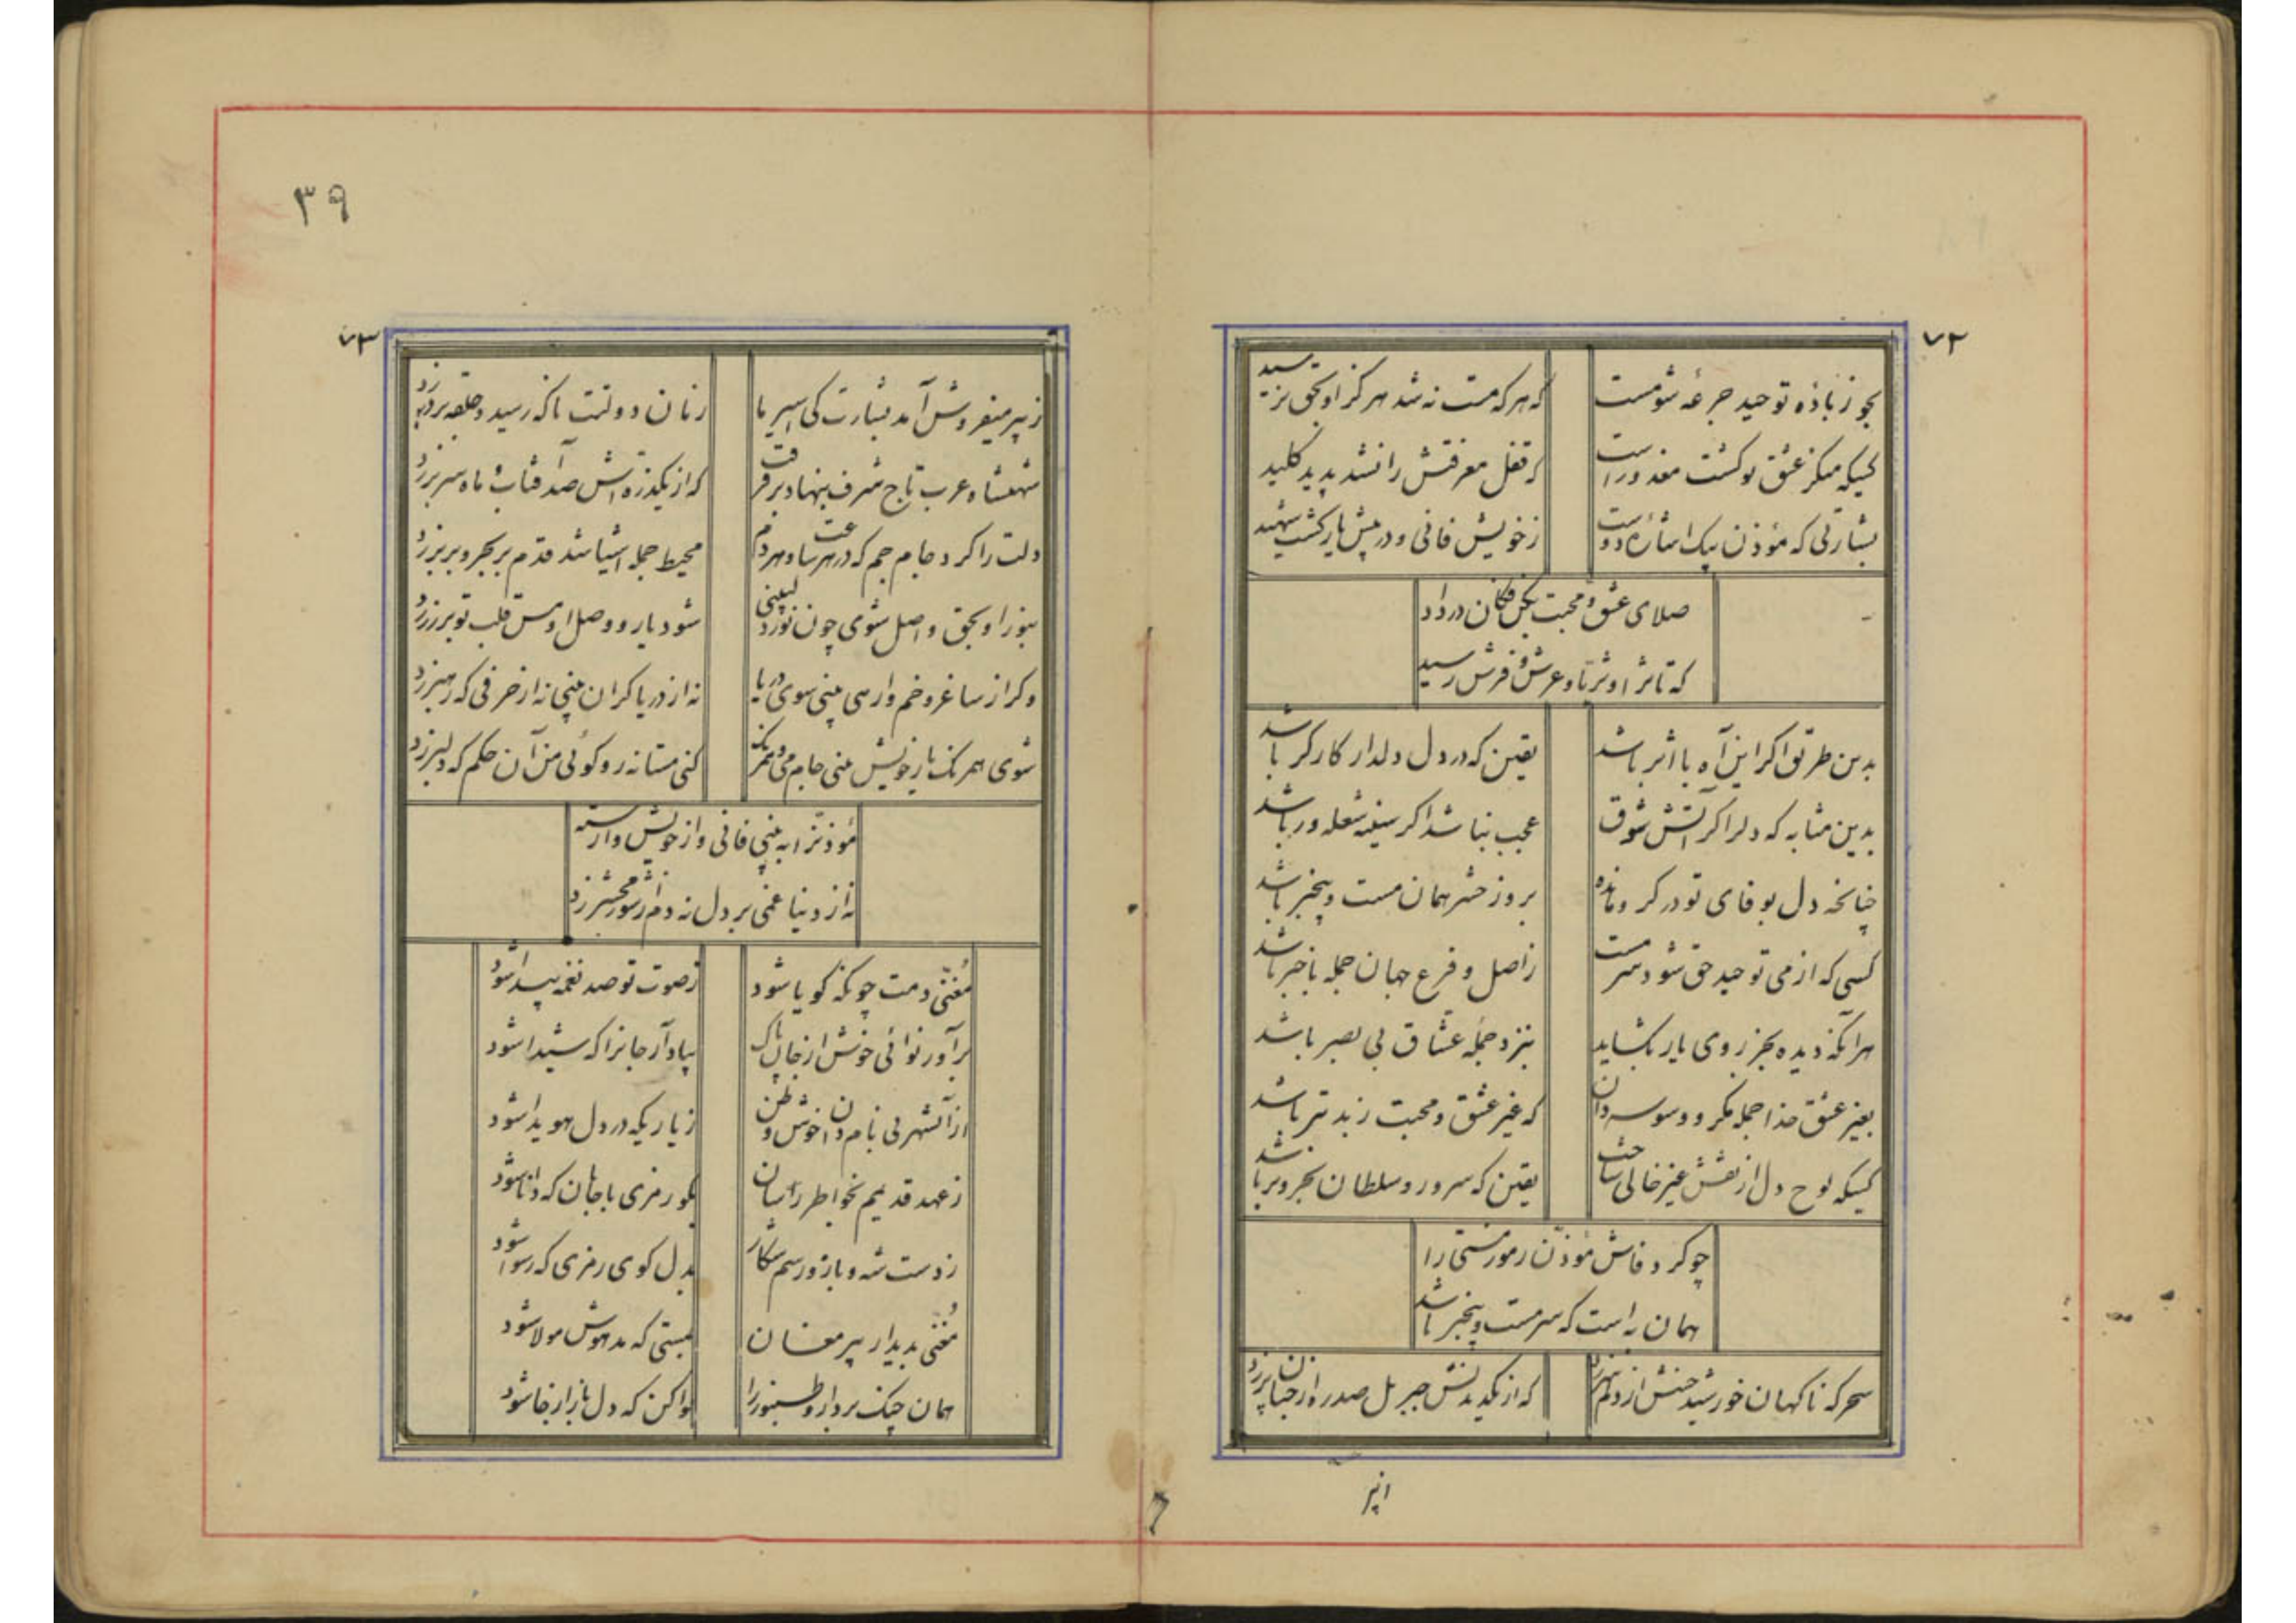 ۷۲
بجو زبادهٔ توحید جرعهٔ شو مست
که هر که مست نه شد هرگز او بحق نرسید
کسیکه ممکر عشق تو کشت معذور است
که قفل معرفتش را نشد پدید کلید
بشارتی که مؤذن بیک اشارهٔ دوست
زخویش فانی و در پیش یار کشت شهید
صلای عشق و محبت بکن فکان در داد
که تا ثر او ثریا و عرش و فرش رسید
بدین طریق اکر این آه با اثر باشد
یقین که در دل دلدار کارکر باشد
بدین مثابه که دلرا کر آتش شوق
عجب نباشد اکر سینه شعله ور باشد
چنانخه دل بوفای تو در کرو مانده
بروز حشر همان مست و بیخبر باشد
کسی که از می توحید حق شود سرمست
زاصل و فرع جهان جمله باخبر باشد
هرآنکه دیده بجز روی یار بکشاید
بنزد جمله عشاق بی بصر باشد
بغیر عشق خدا جمله مکر و وسوسه دان
که غیر عشق و محبت زبد تتر باشد
کسیکه لوح دل از نقش غیر خالی ساخت
یقین که سرور و سلطان بحر و بر باشد
چو کرد فاش مؤذن رموز مستی را
همان به است که سرمست و بیخبر باشد
سحر که ناکهان خورشید حسنش از دلم سر زد
که از یکدیدنش جبریل صدره از جنان پر زد
۳۹
۷۳
زپیر میفروش آمد بشارت کی اسیر ما
زمان دولتت ناکه رسید و حلقه بر در زد
شهنشاه عرب تاج شرف بنهاد بر فرقت
که از یکذره اش صد آفتاب و ماه سر بر زد
دلت را کرد جام جم که در هر ساعت و هر دم
محیط جمله اشیا شد قدم بر بحر و بر بر زد
بنور او بحق واصل شوی چون نور دل بینی
شود یار و وصل او مس قلب تو بر زر زد
وکر از ساغر و خم وارهی بینی سوی دریا
نه از دریا کران بینی نه از حرفی که رهبر زد
شوی همرنک یار خویش بینی جام می همرنک
کنی مستانه رو کوئی من آن حکم که دلبر زد
مؤذنرا به بینی فانی و از خویش وارسته
نه از دنیا غمی بر دل نه دم از شور محشر زد
مُغنّی دمت چونکه کویا شود
زصوت تو صد نغمه پیدا شود
برآور نوائی خوش از جان پاک
بیاد آر جانرا که شیدا شود
از آنشهر بی نام و ان خوش وطن
زیاریکه در دل هویدا شود
زعهد قدیمم بخواطر رسان
بکو رمزی با جان که دانا شود
زدست شه و باز و رسم شکار
بدل کوی رمزی که رسوا شود
مُغنّی بدیدار پیر مغان
بمستی که مدهوش مولا شود
همان چنک بردار و طنبور را
نوا کن که دل باز از جا شود